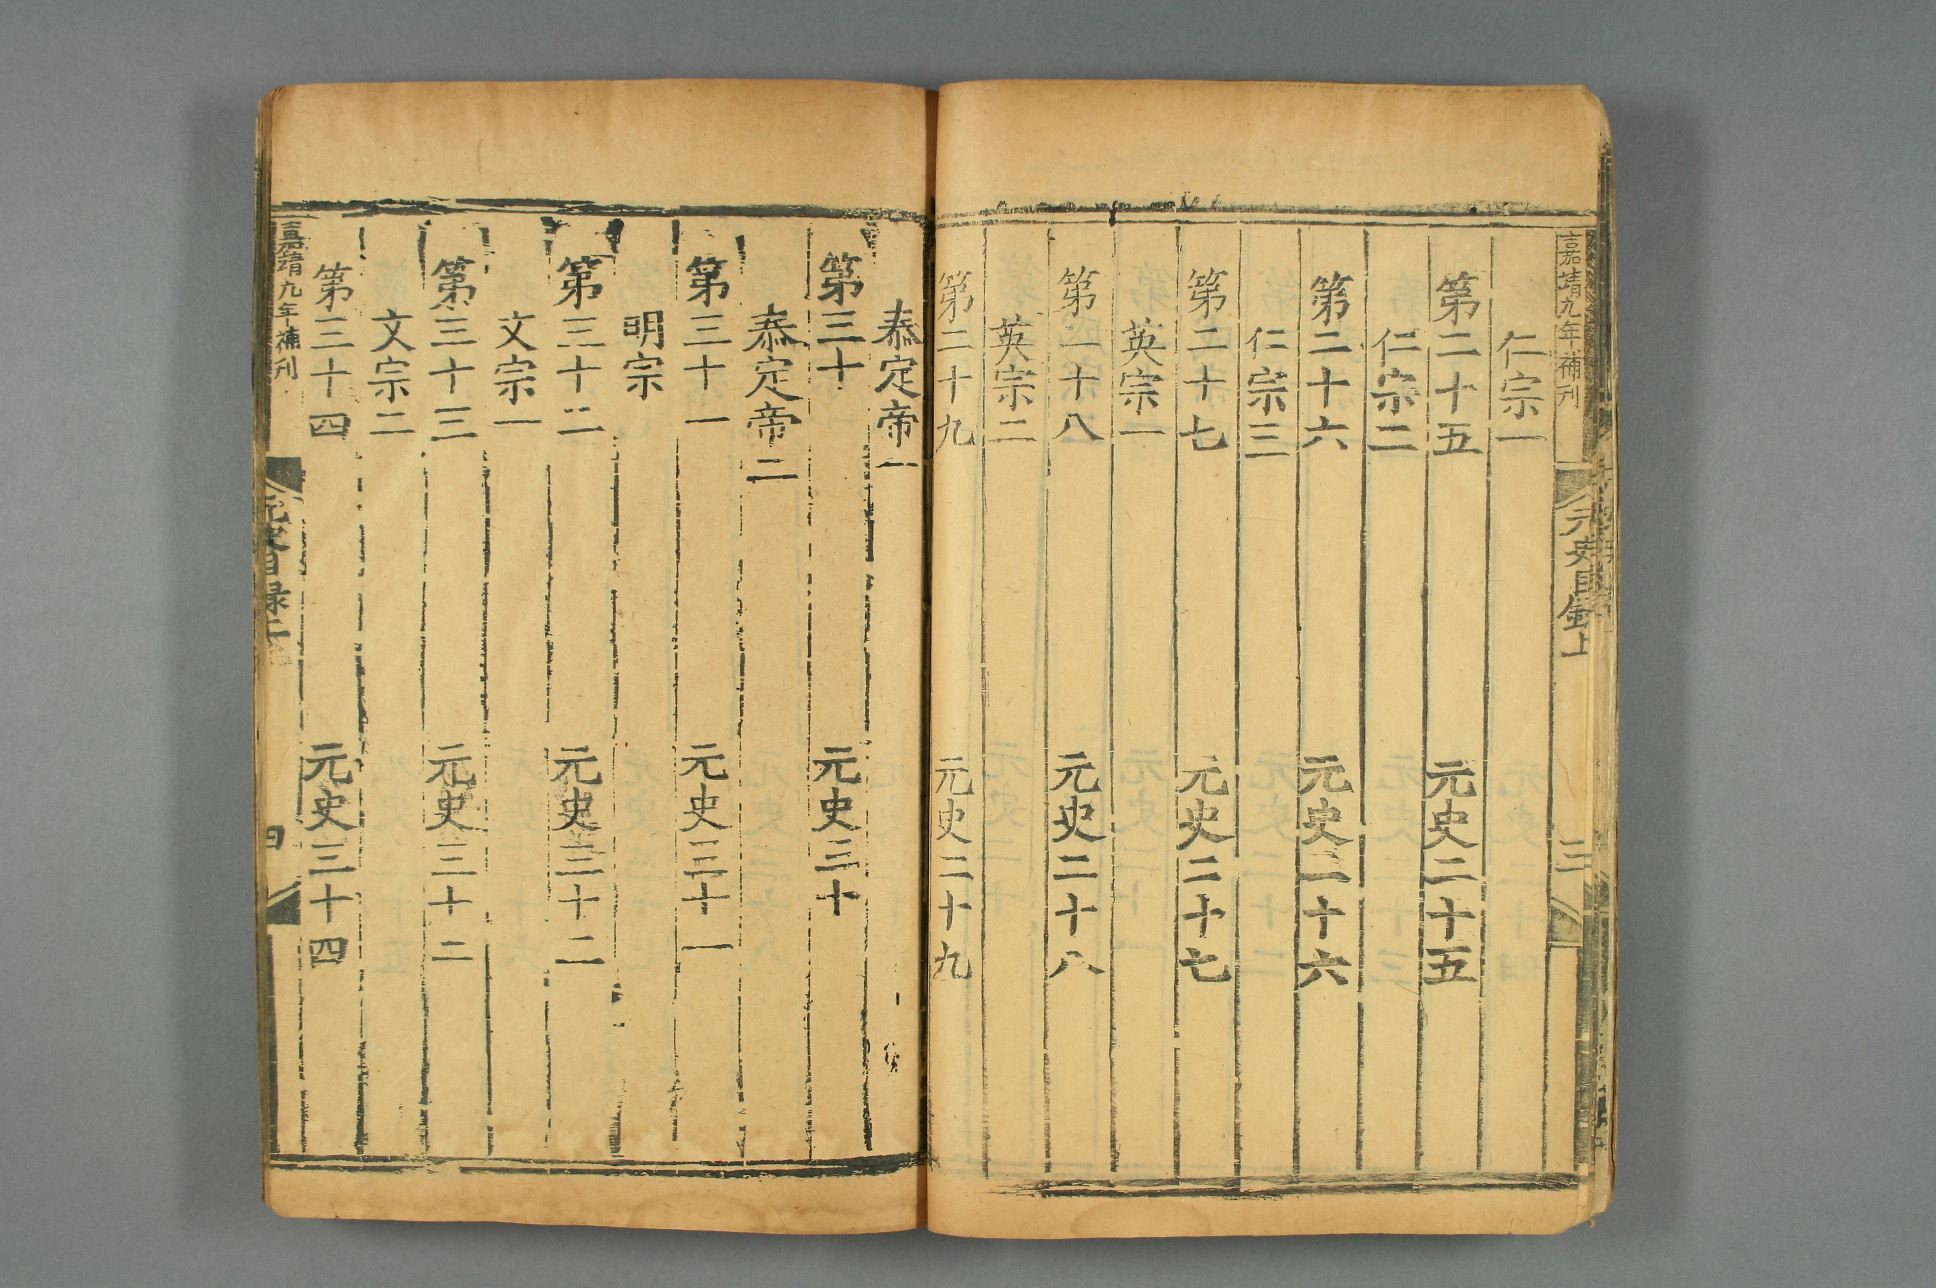 嘉靖九年補刊 元史目錄上 三
仁宗一
第二十五 元史二十五
仁宗二
第二十六 元史二十六
仁宗三
第二十七 元史二十七
英宗一
第二十八 元史二十八
英宗二
第二十九 元史二十九
泰定帝一
第三十 元史三十
泰定帝二
第三十一 元史三十一
明宗
第三十二 元史三十二
文宗一
第三十三 元史三十二
文宗二
第三十四 元史三十四
嘉靖九年補刊 元史目録 四